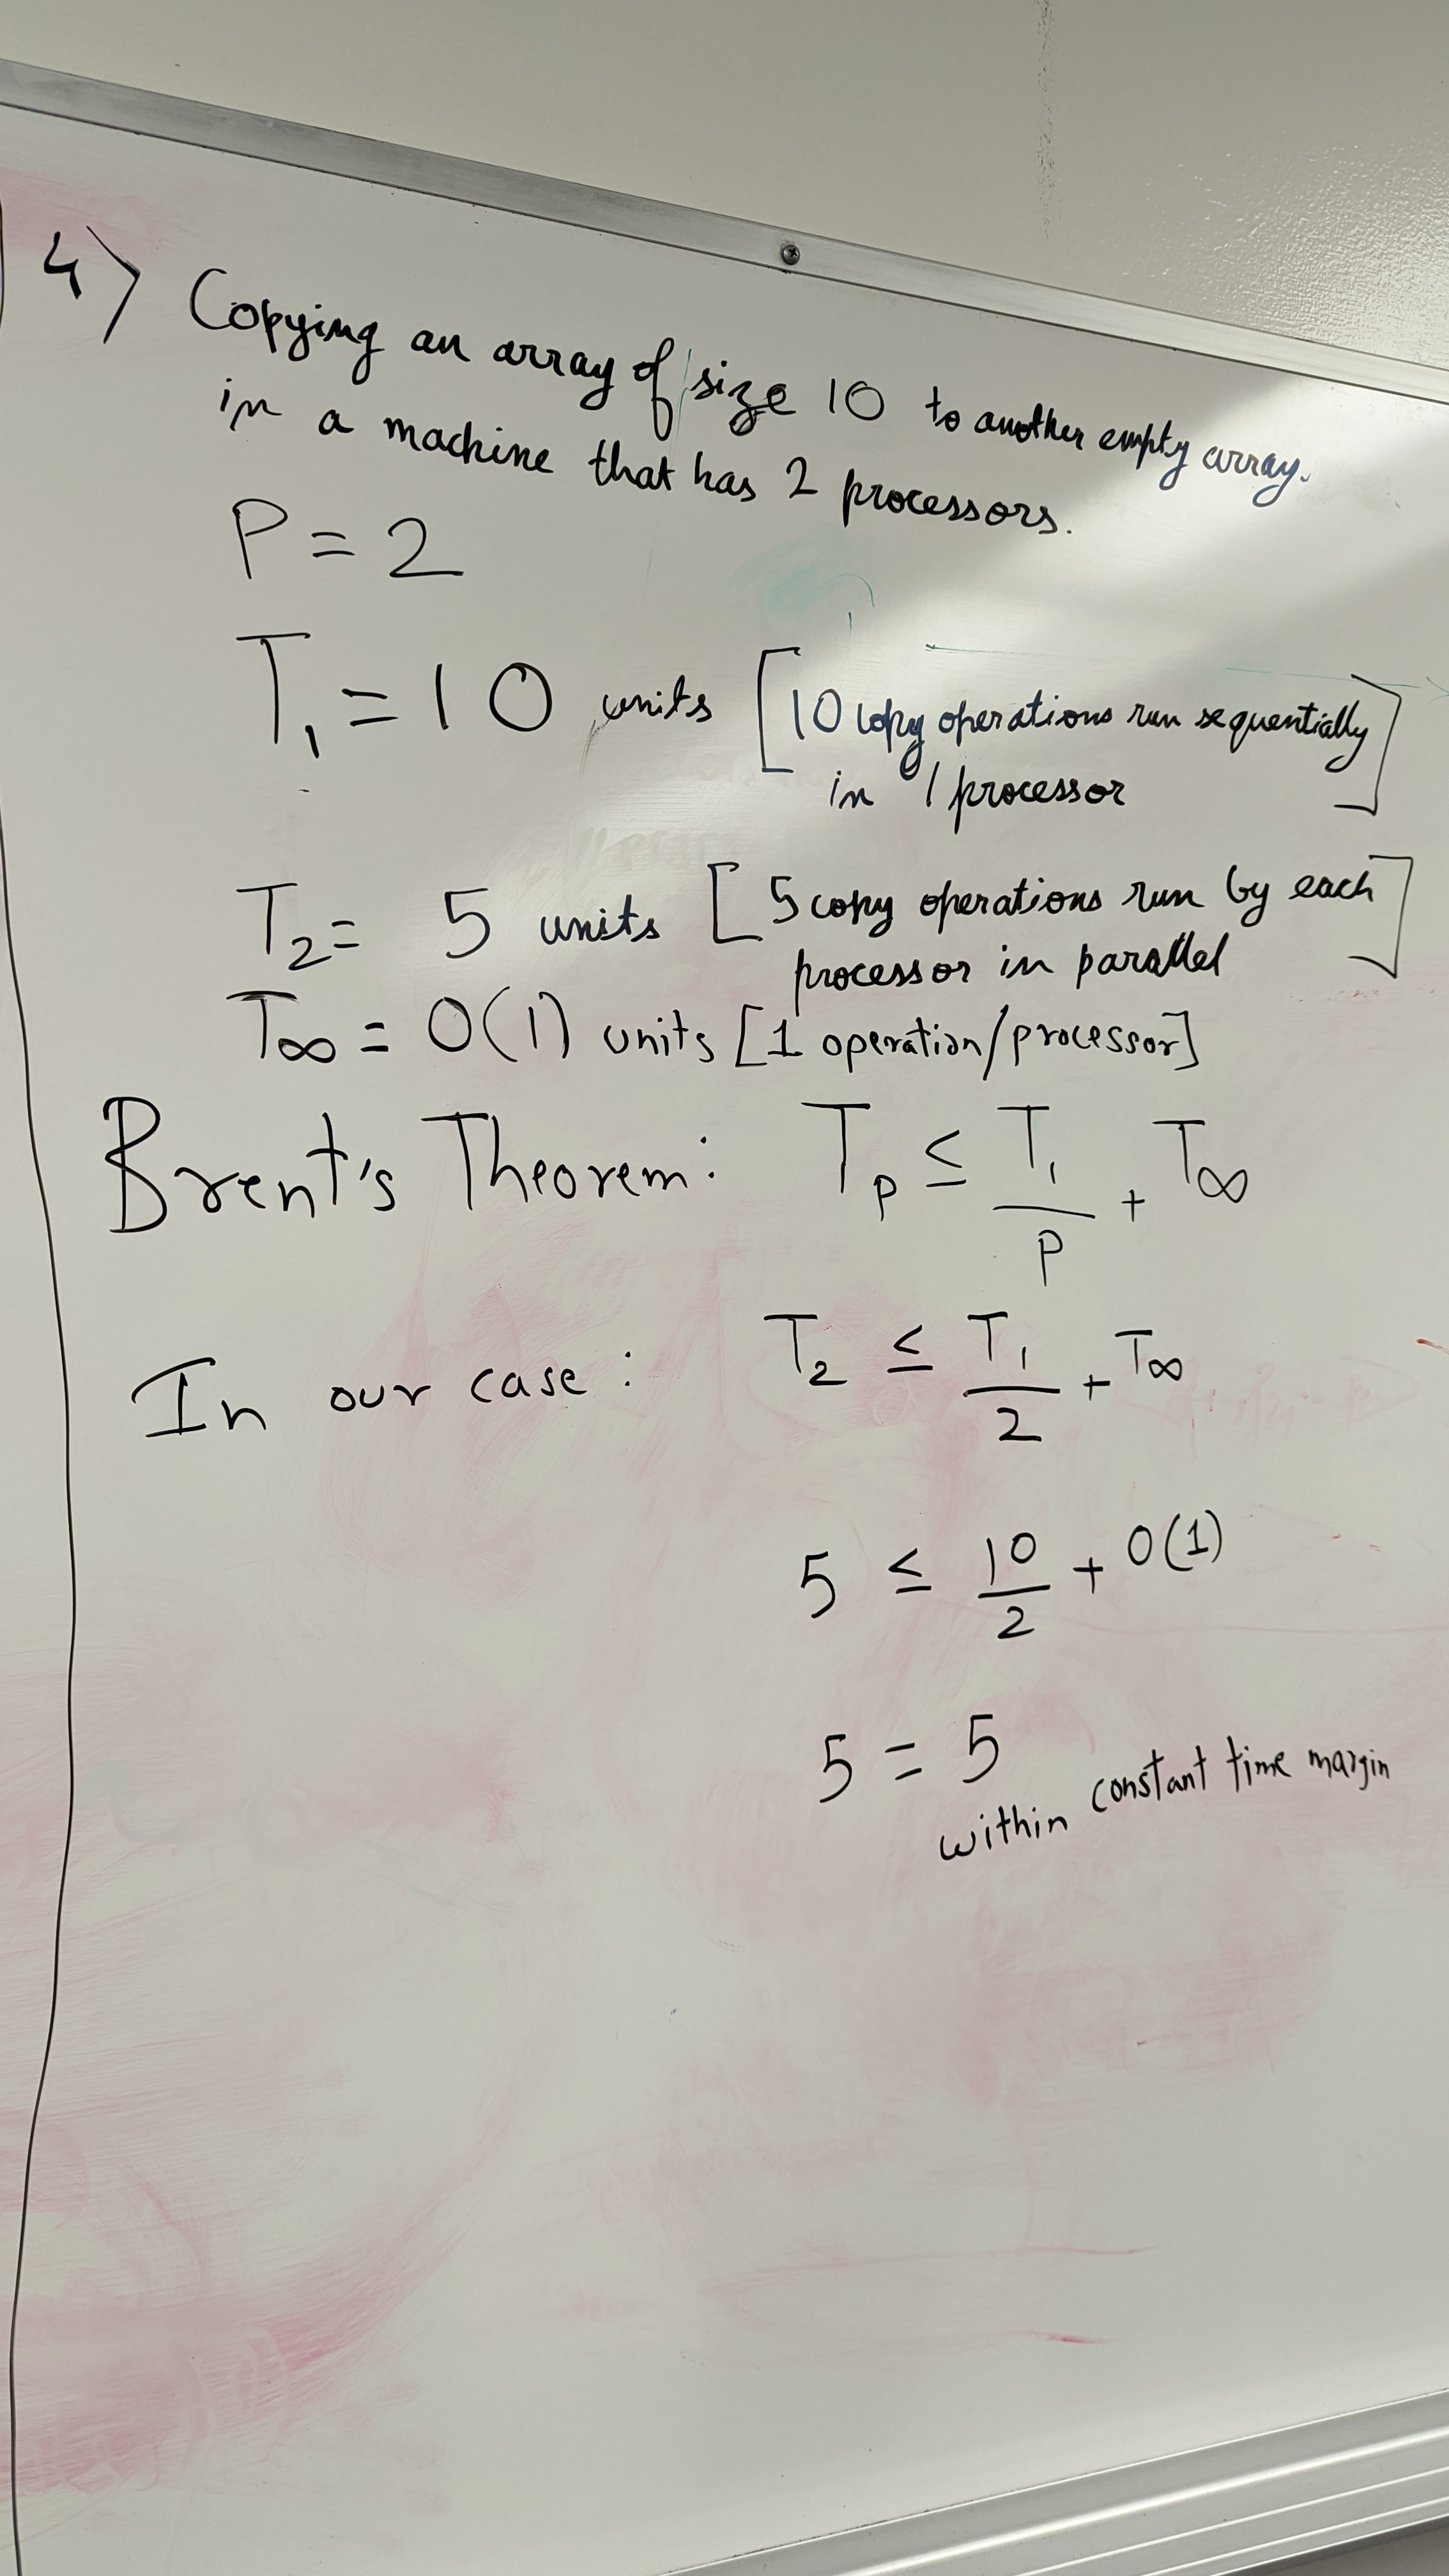 4) Copying an array of size 10 to another empty array.
in a machine that has 2 processors.
P = 2
T₁ = 10 units [10 copy operations run sequentially
in 1 processor]
T₂ = 5 units [5 copy operations run by each
processor in parallel]
T∞ = O(1) units [1 operation/processor]
Brent's Theorem: Tₚ ≤ T₁/P + T∞
In our case: T₂ ≤ T₁/2 + T∞
5 ≤ 10/2 + O(1)
5 = 5
within constant time margin